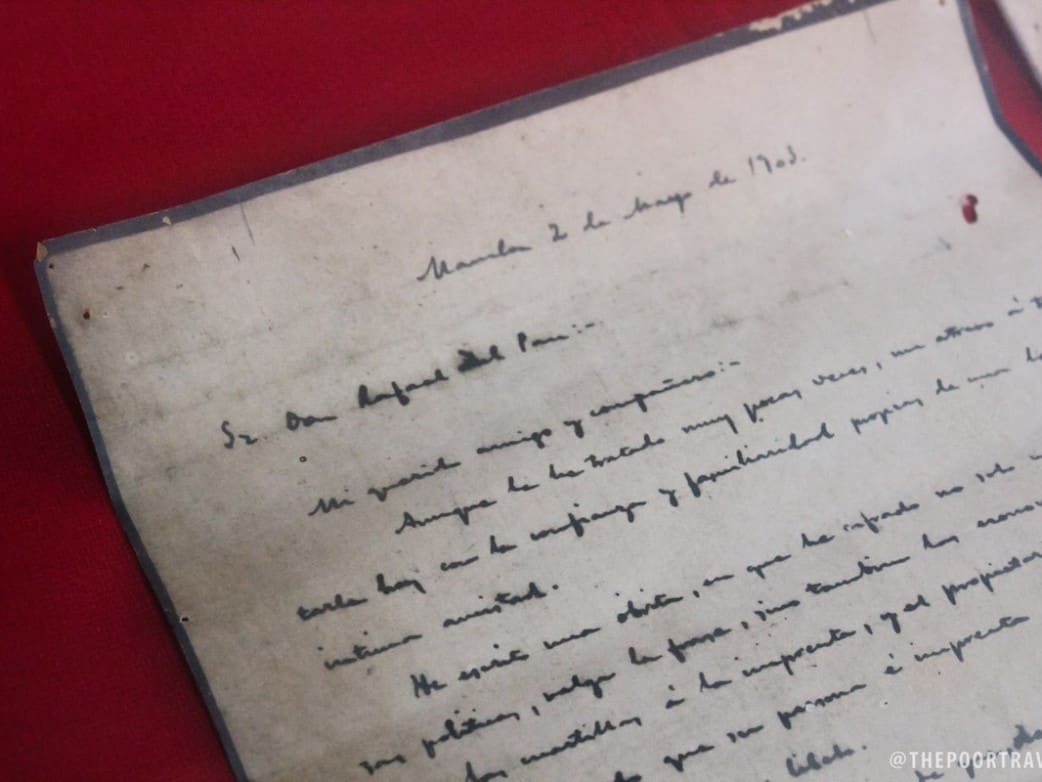 Manila 2 de Mayo de 1903.
Sr. Don Rafael Del Pan:-
Mi querido amigo y compañero:-
Aunque le he tratado muy pocas veces, me atrevo á
tarle hoy con la confianza y familiaridad propias de una
intima amistad.
He escrito una obrita, en que he no solo
sus politicas, valga la frase, sino tambien las
á la imprenta, y el propietar
que su persona é imprenta
@THEPOORTRAV